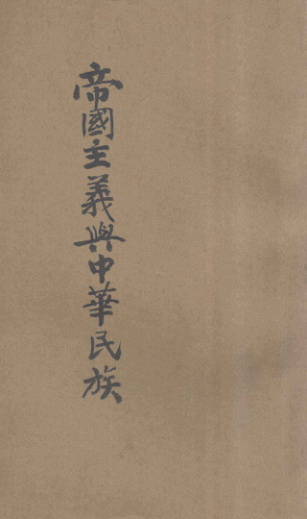 帝國主義與中華民族